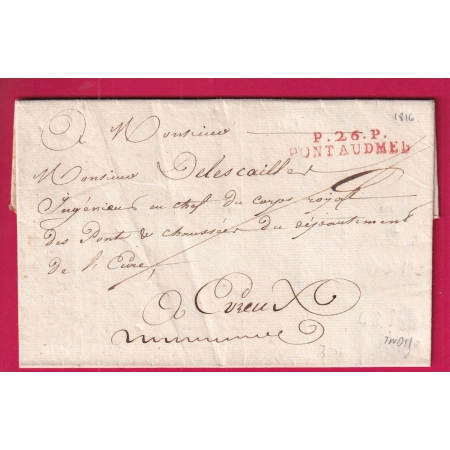 1816
P.26.P.
PONTAUDMER
A Monsieur
Monsieur Delescaille
Ingénieur en chef du corps royal
des Pont & chaussées du département
de l'Eure,
a Evreux